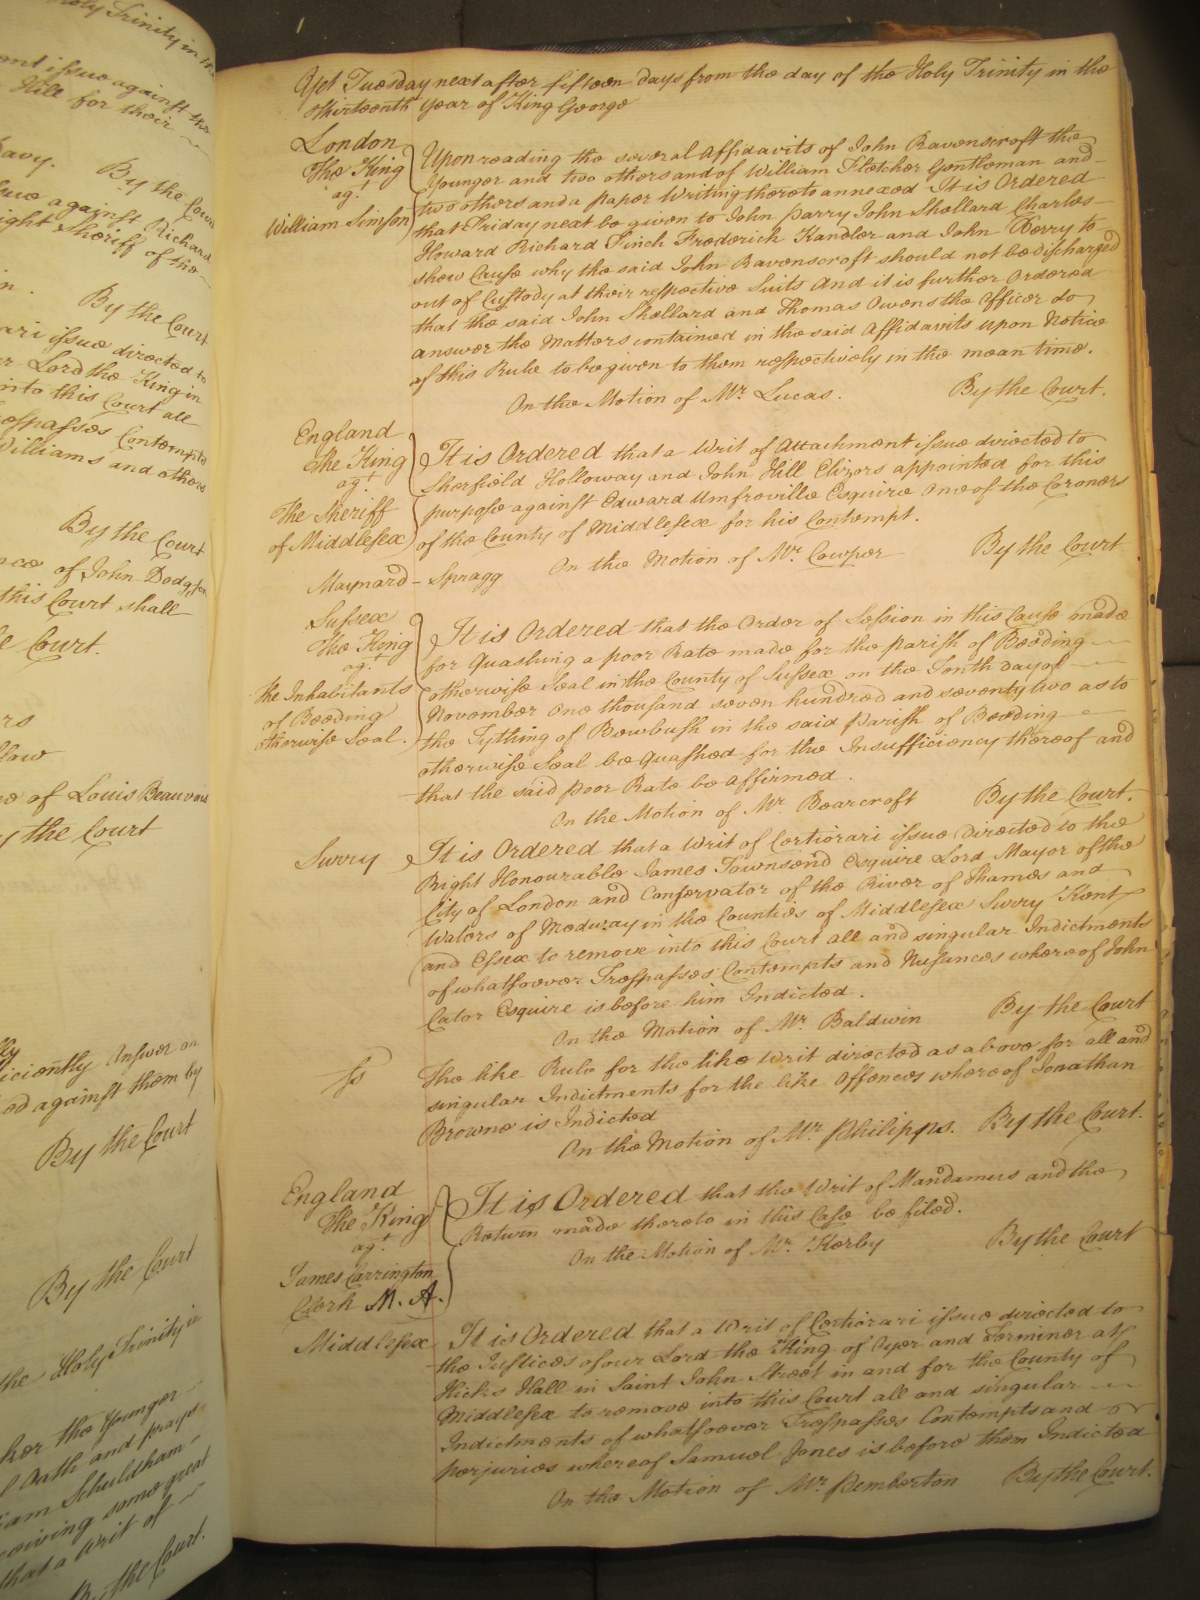 Holy Trinity in the
ant issue against the
Hill for their
Navy. By the Court
issue against Richard
Knight Sheriff of the
By the Court
ari issue directed to
Lord the King in
into this Court all
Trespasses Contempts
Williams and others
By the Court
of John Dodgson
this Court shall
Court.
of Louis Beauvais
the Court
iciently Answer on
ed against them by
By the Court
By the Court
the Holy Trinity in
ker the Younger
Oath and prays
iam Schuldham
ceiving some great
that a Writ of
By the Court.
Yet Tuesday next after fifteen days from the day of the Holy Trinity in the
thirteenth year of King George
London
The King
agt
William Simson
Upon reading the several Affidavits of John Ravenscroft the
Younger and two others and of William Fletcher Gentleman and
two others and a paper Writing thereto annexed It is Ordered
that Friday next be given to John Parry John Shollard Charles
Howard Richard Finch Frederick Kandler and John Derry to
shew Cause why the said John Ravenscroft should not be discharged
out of Custody at their respective Suits And it is further Ordered
that the said John Shollard and Thomas Owens the Officer do
answer the Matters contained in the said Affidavits upon Notice
of this Rule to be given to them respectively in the mean time.
On the Motion of Mr. Lucas. By the Court.
England
The King
agt
The Sheriff
of Middlesex
It is Ordered that a Writ of Attachment issue directed to
Sherfield Holloway and John Hill Elizors appointed for this
purpose against Edward Umfreville Esquire One of the Coroners
of the County of Middlesex for his Contempt.
On the Motion of Mr. Cowper By the Court
Maynard - Spragg
Sussex
The King
agt
the Inhabitants
of Beeding
otherwise Seal.
It is Ordered that the Order of Session in this Cause made
for Quashing a poor Rate made for the parish of Beeding
otherwise Seal in the County of Sussex on the Tenth day of
November One thousand seven hundred and seventy two as to
the Tything of Bewbush in the said parish of Beeding
otherwise Seal be Quashed for the Insufficiency thereof and
that the said poor Rate be affirmed.
On the Motion of Mr. Bearcroft By the Court.
Surry
It is Ordered that a Writ of Certiorari issue Directed to the
Right Honourable James Townsend Esquire Lord Mayor of the
City of London and Conservator of the River of Thames and
Waters of Medway in the Counties of Middlesex Surry Kent
and Essex to remove into this Court all and singular Indictments
of whatsoever Trespasses Contempts and Nusances whereof John
Cator Esquire is before him Indicted.
On the Motion of Mr. Baldwin By the Court
Ss
The like Rule for the like Writ directed as above for all and
singular Indictments for the like Offences whereof Jonathan
Browne is Indicted
On the Motion of Mr. Philipps. By the Court.
England
The King
agt
James Carrington
Clerk M. A.
It is Ordered that the Writ of Mandamus and the
Return made thereto in this Case be filed.
On the Motion of Mr. Kerby By the Court
Middlesex
It is Ordered that a Writ of Certiorari issue directed to
the Justices of our Lord the King of Oyer and Terminer at
Hicks Hall in Saint John Street in and for the County of
Middlesex to remove into this Court all and singular
Indictments of whatsoever Trespasses Contempts and
perjuries whereof Samuel Jones is before them Indicted
On the Motion of Mr. Pemberton By the Court.